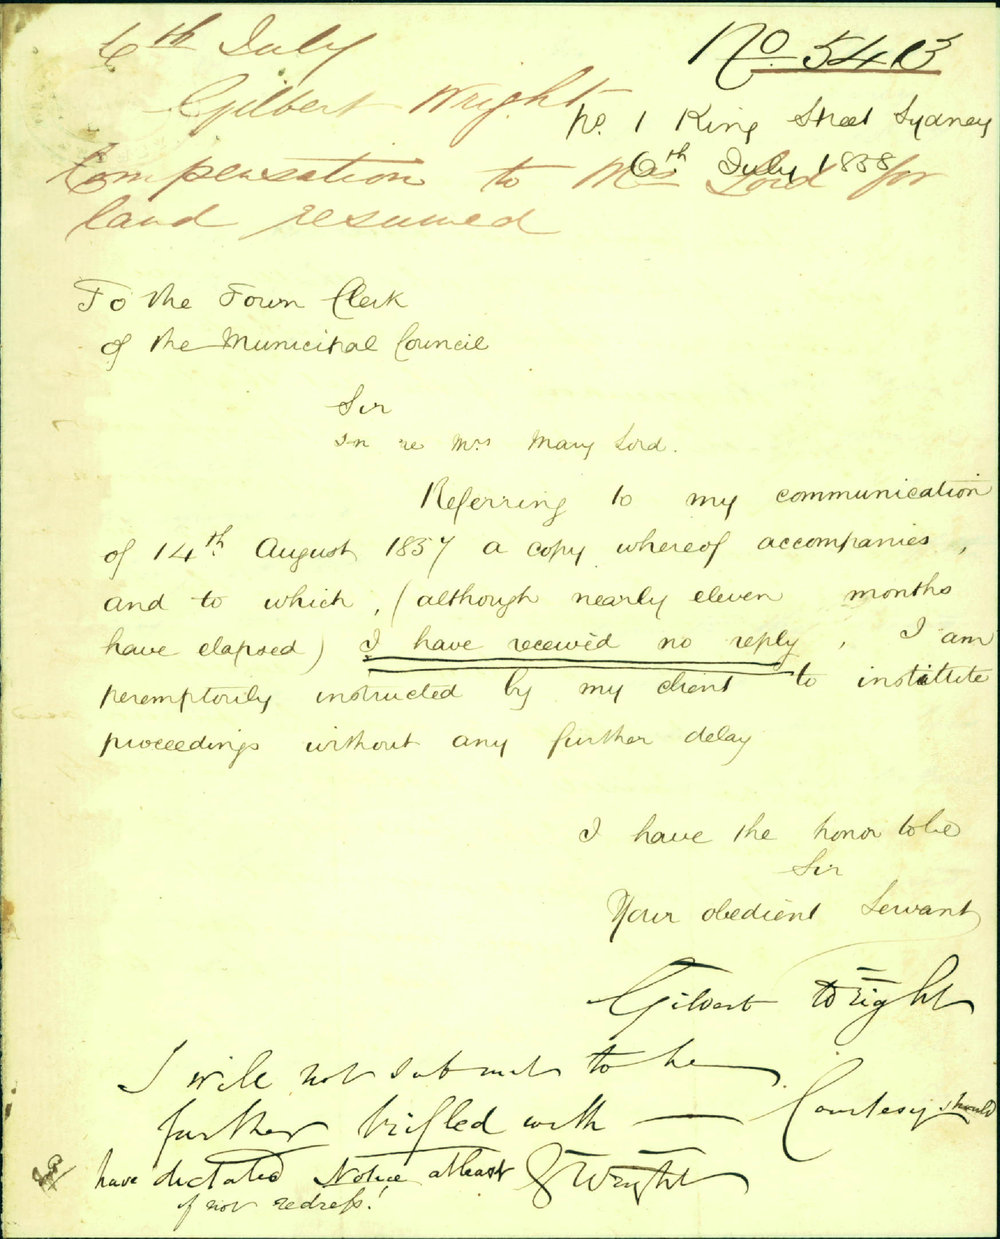 6th July
Gilbert Wright
Compensation to Mrs Lord for
land resumed
No. 543
No. 1 King Street Sydney
6th July 1858
To the Town Clerk
of the Municipal Council
Sir
In re Mrs Mary Lord.
Referring to my communication
of 14th August 1857 a copy whereof accompanies,
and to which, (although nearly eleven months
have elapsed) I have received no reply, I am
peremptorily instructed by my client to institute
proceedings without any further delay
I have the honor to be
Sir
Your obedient Servant
Gilbert Wright
I will not submit to be
further trifled with — Courtesy should
have dictated Notice at least
if not redress!
G Wright